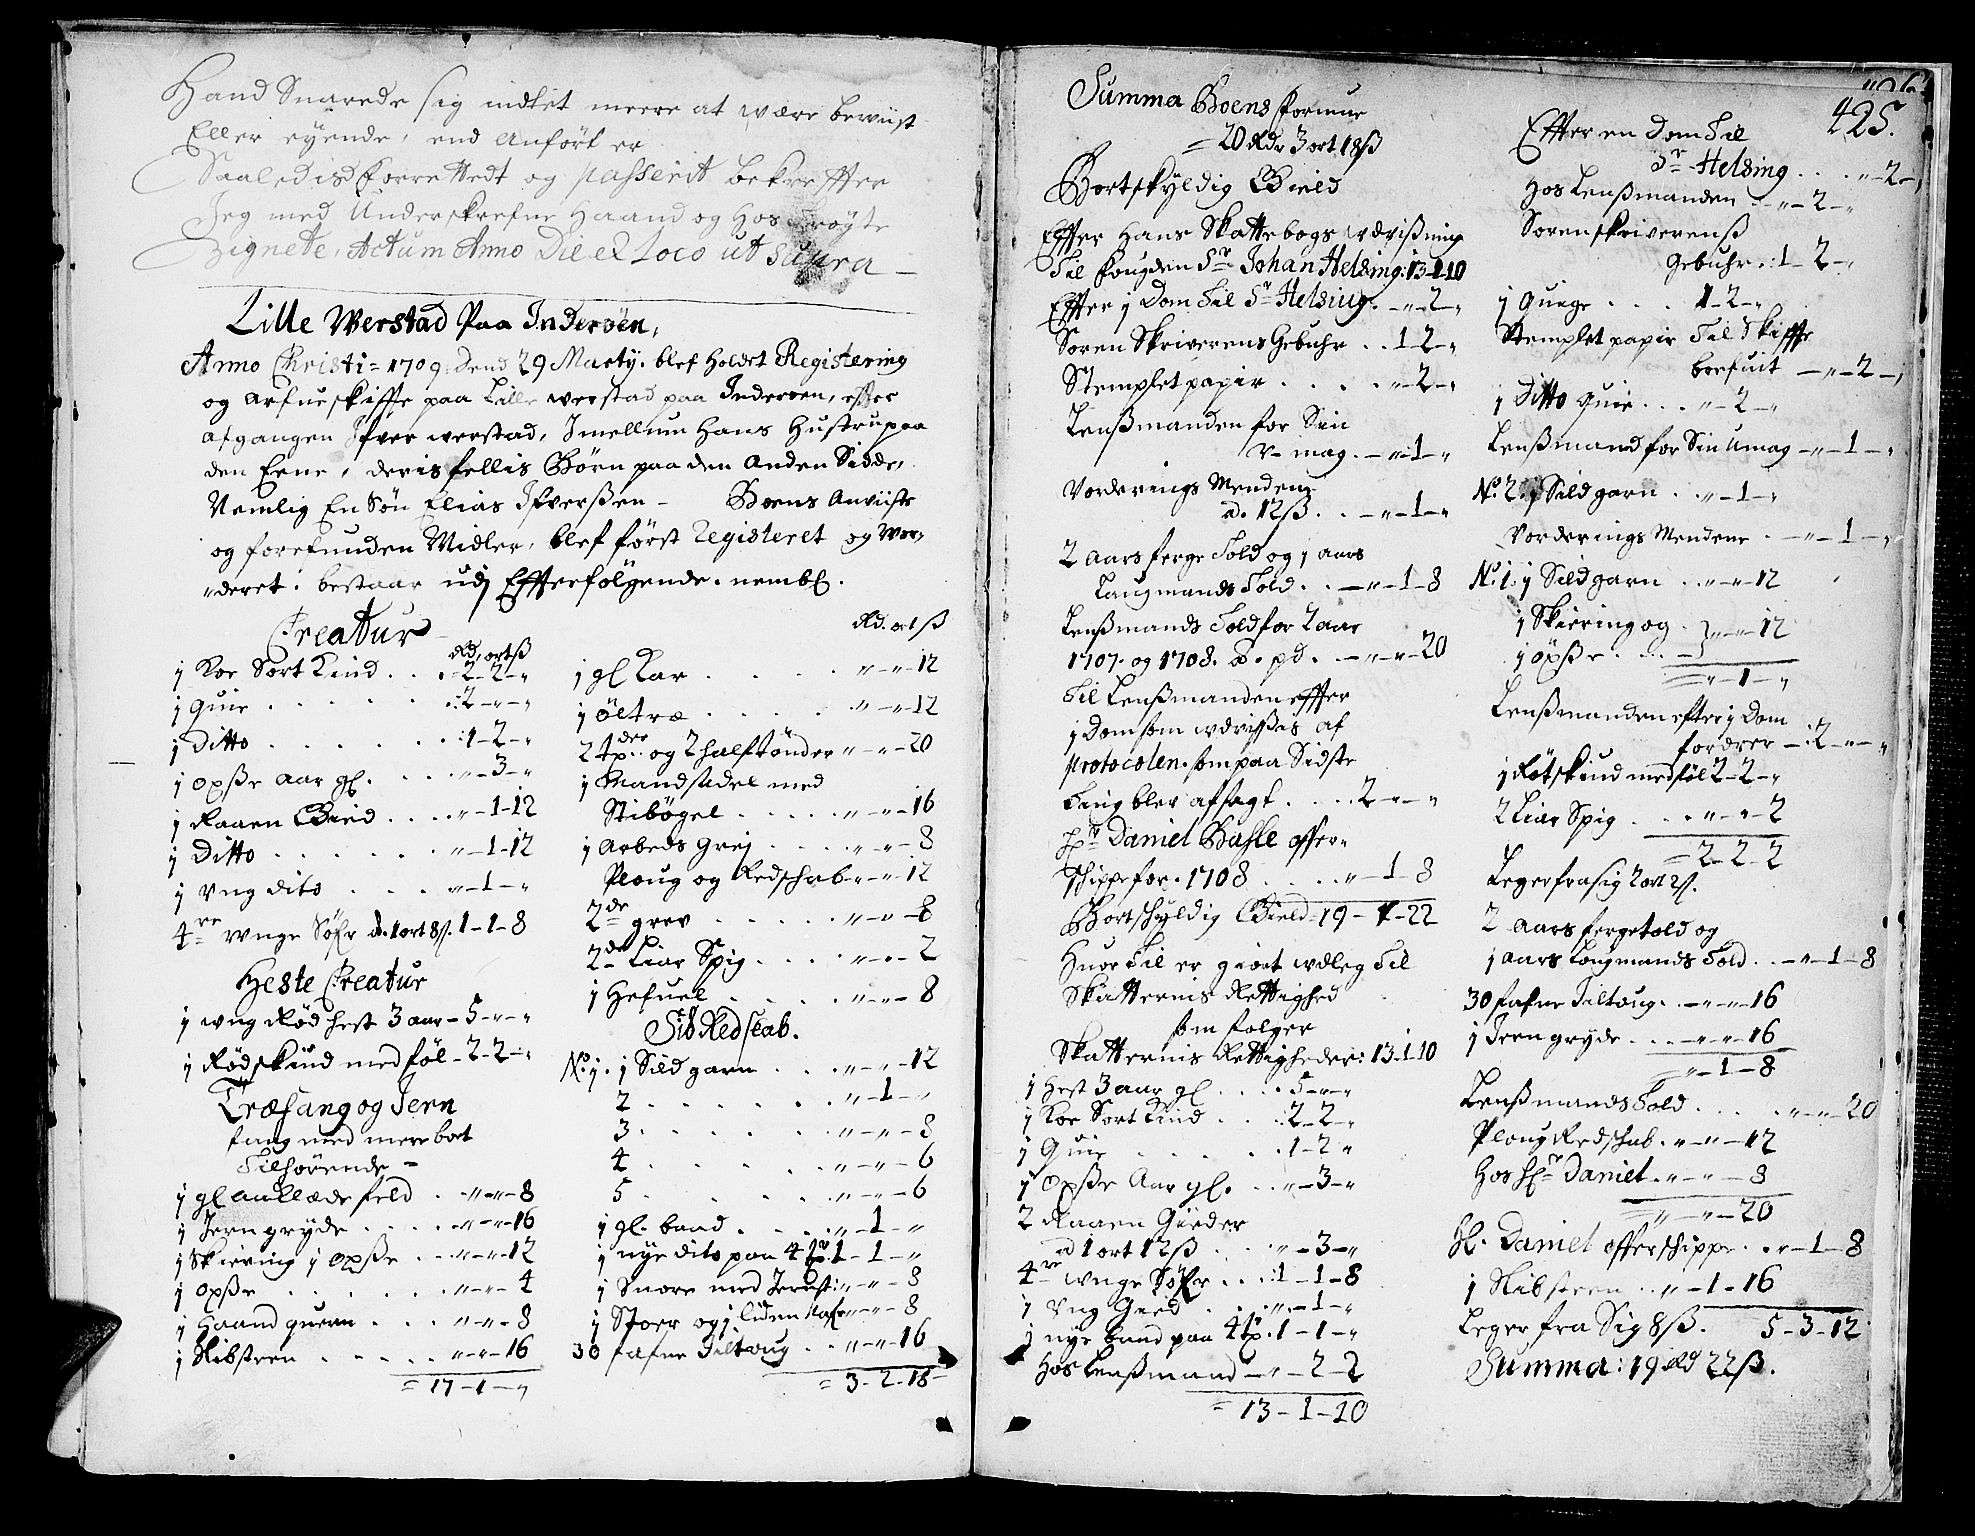 Hand Snarede sig indtet meere at være bewüst
Eller eyende, end Anført er
Saaledis forrettedt og passerit bekreffter
Jeg med Underskrefne Haand og Hos trøyte
Zignete, Actum Anno Die et Loco ut Supra —
Lille Werstad Paa Inderøen,
Anno Christi = 1709. Dend 29 Marty. blef Holdet Registering
og Arfueskiffte paa Lille werstad paa Inderøen, effter
afgangen Ifver werstad, Imellum Hans Hustru paa
den Eene, deris fellis Børn paa den Anden Sidde,
Nemlig En Søn Elias Ifverßen — Boens Anviiste
og forefunden Midler, blef først Registeret og Wor-
deret. bestaar udj Effterfølgende. nembl.
Creatur
Rd. ort ß
1 Koe Sort Kind . . . 2 - 2 - "
1 Quie . . . . . 2 - " - "
1 Ditto . . . . . 1 - 2 - "
1 opsße aar gl. . . . " - 3 - "
1 Raaen Gied . . . . " - 1 - 12
1 Ditto . . . . . " - 1 - 12
1 vng dito . . . . " - 1 - "
4re wnge Søfr a 1 ort 8 ß. 1 - 1 - 8
Heste Creatur
1 wng Rød hest 3 aar - 5 - " - "
1 Rødskind med føl - 2 - 2 - "
Træfang og Jern
fang med mere boet
Tilhørende —
1 gl aullæde feld . " - " - 8
1 Jern gryde . . . . " - " - 16
1 Skiering 1 opsße . . " - " - 12
1 opsße . . . . . " - " - 4
1 Haand quern . . . " - " - 8
1 Slibsteen . . . . . " - " - 16
= 17 - 1 - "
Rd. ort ß
1 gl Kar . . . . . " - " - 12
1 øltræ . . . . . " - " - 12
2 tp. og 2 halftønder " - " - 20
1 Mandsadel med
Stibøgel . . . . . " - " - 16
1 Arbeds Grej . . . . " - " - 8
Ploug og Redschab " - " - 12
2de grev . . . . . " - " - 8
2de Liar Spig . . . . " - " - 2
1 Hefuel . . . . . " - " - 8
Siö Redskab.
No. 1. 1 Sild garn . . . " - " - 12
2 . . . . . . " - 1 - "
3 . . . . . . " - " - 8
4 . . . . . . " - " - 6
5 . . . . . . " - " - 6
1 gl. baad . . . . " - 1 - "
1 nye dito paa 4 tp. 1 - 1 - "
1 Snore med " - " - 8
1 Stoer og 1 liden " - " - 8
30 fafne Tiltoug . . " - " - 16
= 3 - 2 - 18
Summa Boens formue
= 20 Rdr 3 ort 18 ß
Bortskyldig Gield
Effter Hans Skattebogs wdvißning
Til fougden Sr Johan Helsing: 13 - 1 - 10
Effter 1 Dom Til Sr Helsing. - " - 2 - "
Soren Skriverens Gebuhr . . 1 - 2 - "
Stemplet papir . . . . " - 2 - "
Lenßmanden for Sin
V-mag. - " - 1 - "
Vorderings Mendene
a. 12 ß . . - " - 1 - "
2 aars ferge Told og 1 aars
Laugmands Told . . - " - 1 - 8
Lenßmands Told for 2 aar
1707. og 1708. a. pd. - " - " - 20
Til Lenßmanden effter
1 Dom som wdvißis af
protocolen. som paa Sidste
Ting blev afsagt . . . . 2 - " - "
Hr Daniel Bassle offer-
schippe for. 1708 . . . . " - 1 - 8
Bortschyldig Gield = 19 - 1 - 22
Huor Til er giort wdleg Til
Skatternis Rettighed
som følger
Skatternis Rettigheder: 13 - 1 - 10
1 Hest 3 aar gl . . . . 5 - " - "
1 Koe Sort Kind . . . . 2 - 2 - "
1 Quie . . . . . . 1 - 2 - "
1 Opsße Aar gl. . . " - 3 - "
2 Raaen Gieder
ad 1 ort 12 ß . . . " - 3 - "
4re wnge Søfr . . . 1 - 1 - 8
1 vng Gied . . . . " - 1 - "
1 nye baad paa 4 tp. 1 - 1 - "
Hos Lenßmand - " - 2 - 2
= 13 - 1 - 10
425.
Effter en Dom Til
Sr Helsing . . . " - 2 - "
Hos Lenßmanden . - " - 2 - "
Soren skriverenß
Gebuhr . : 1 - 2 - "
1 Quege . . . 1 - 2 - "
Stemplet papir Til Skiffte
brefuit - " - 2 - "
1 Ditto Quie . . . " - 2 - "
Lenßmand for Sin Umag - " - 1 - "
No. 2. 1 Sild garn . . " - 1 - "
Vorderings Mendene . - " - 1 - "
No. 1. 1 Sild garn . . " - " - 12
1 Skiering og . } " - " - 12
1 opsße . . .
" - 1 - "
Lenßmanden efter 1 Dom
fordrer - : 2 - " - "
1 Rötskind med føl 2 - 2 - "
2 Liar Spig . . . " - " - 2
= 2 - 2 - 2
Leger fra sig 2 ort 2 ß.
2 aars fergetold og
1 aars Laugmands Told . . - " - 1 - 8
30 fafne Tiltoug. . - " - " - 16
1 Jern gryde . . . - " - " - 16
" - 1 - 8
Lenßmands Told . . . . " - " - 20
Ploug Redschab. " - " - 12
Hos Hr Daniel. " - " - 8
" - " - 20
Hr. Daniel offerschippe . . " - 1 - 8
1 Slibsteen . . " - 1 - 16
Leger fra Sig 8 ß. 5 - 3 - 12
Summa: 19 Rd 22 ß.